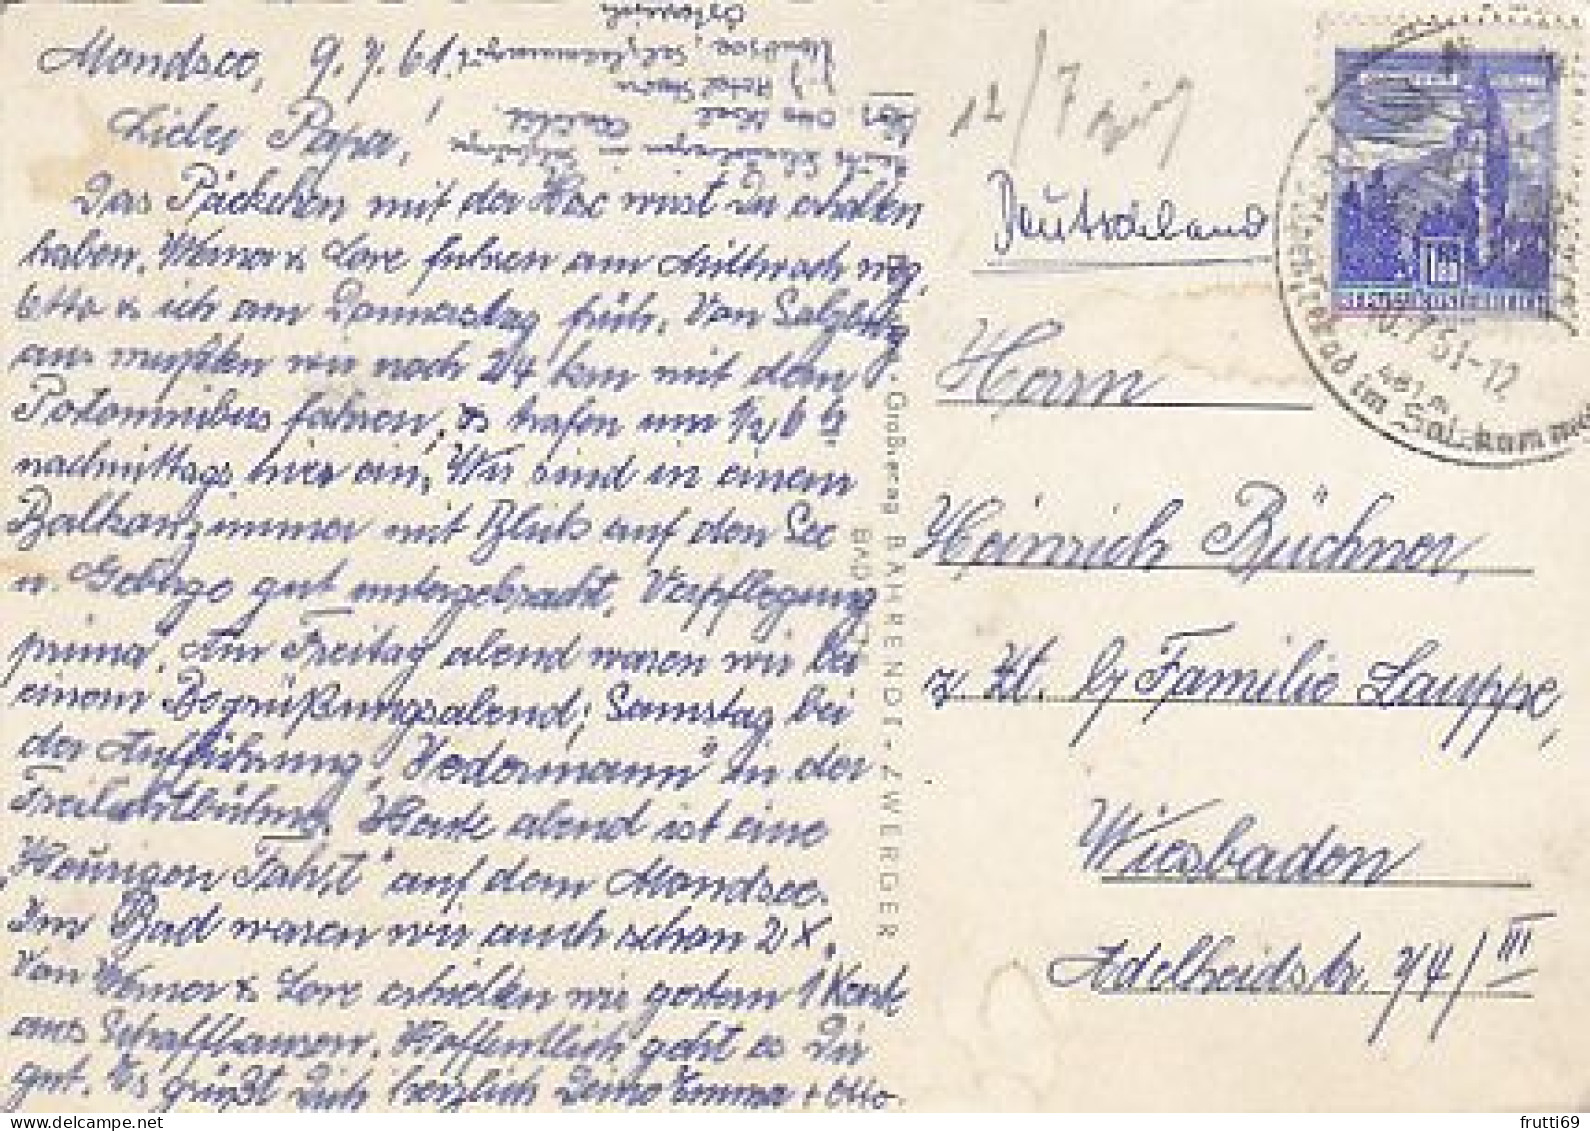 Mondsee, 9.7.61.
Lieber Papa!
Das Päckchen mit der Hose wirst Du erhalten
haben. Werner & Lore fuhren am Mittwoch weg,
Otto & ich am Donnerstag früh. Von Salzburg
aus mußten wir noch 24 km mit dem
Postomnibus fahren, & trafen um 1/2 6 h
nachmittags hier ein. Wir sind in einem
Balkonzimmer mit Blick auf den See
u. Gebirge gut untergebracht, Verpflegung
prima. Am Freitag abend waren wir bei
einem Begrüßungsabend; Samstag bei
der Aufführung „Jedermann" in der
Freilichtbühne. Heute abend ist eine
„Heurigen Fahrt" auf dem Mondsee.
Im Bad waren wir auch schon 2 X.
Von Werner & Lore erhielten wir gestern 1 Karte
aus Schaffhausen. Hoffentlich geht es Dir
gut. Es grüßt Dich herzlich Deine Emma + Otto.
Österreich
Mondsee, Salzkammergut
Deutschland
Herrn
Heinrich Büchner,
z. Zt. bei Familie Lauppe,
Wiesbaden
Adelheidstr. 74/III
BÄHRENDT - ZWERGER
1.80
REPUBLIK ÖSTERREICH
10.7.61-12
im Salzkammer
frutti69